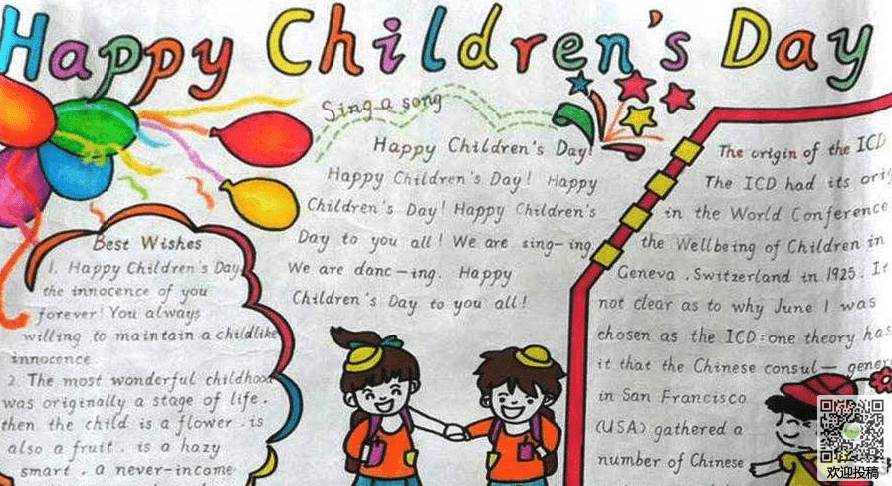 Happy Children's Day
Sing a song
Happy Children's Day!
Happy Children's Day! Happy
Children's Day! Happy Children's
Day to you all! We are sing-ing,
We are danc-ing. Happy
Children's Day to you all!
Best Wishes
1. Happy Children's Day
the innocence of you
forever! You always
willing to maintain a childlike
innocence
2. The most wonderful childhood
was originally a stage of life.
then the child is a flower. is
also a fruit. is a hazy
smart. a never-income
The origin of the ICD
The ICD had its orig
in the World Conference
the Wellbeing of Children in
Geneva. Switzerland in 1925. It
not clear as to why June 1 was
chosen as the ICD: one theory has
it that the Chinese consul- gener
in San Francisco
(USA) gathered a
number of Chinese
欢迎投稿